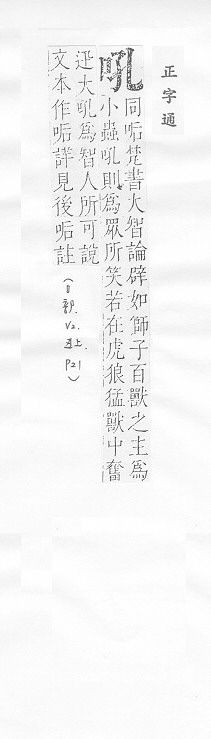 正字通
吼
同㖃梵書大智論辟如獅子百獸之主為
小蟲吼則為眾所笑若在虎狼猛獸中奮
迅大吼為智人所可說
文本作㖃詳見後㖃註
(口部. V2. 丑上. P21)